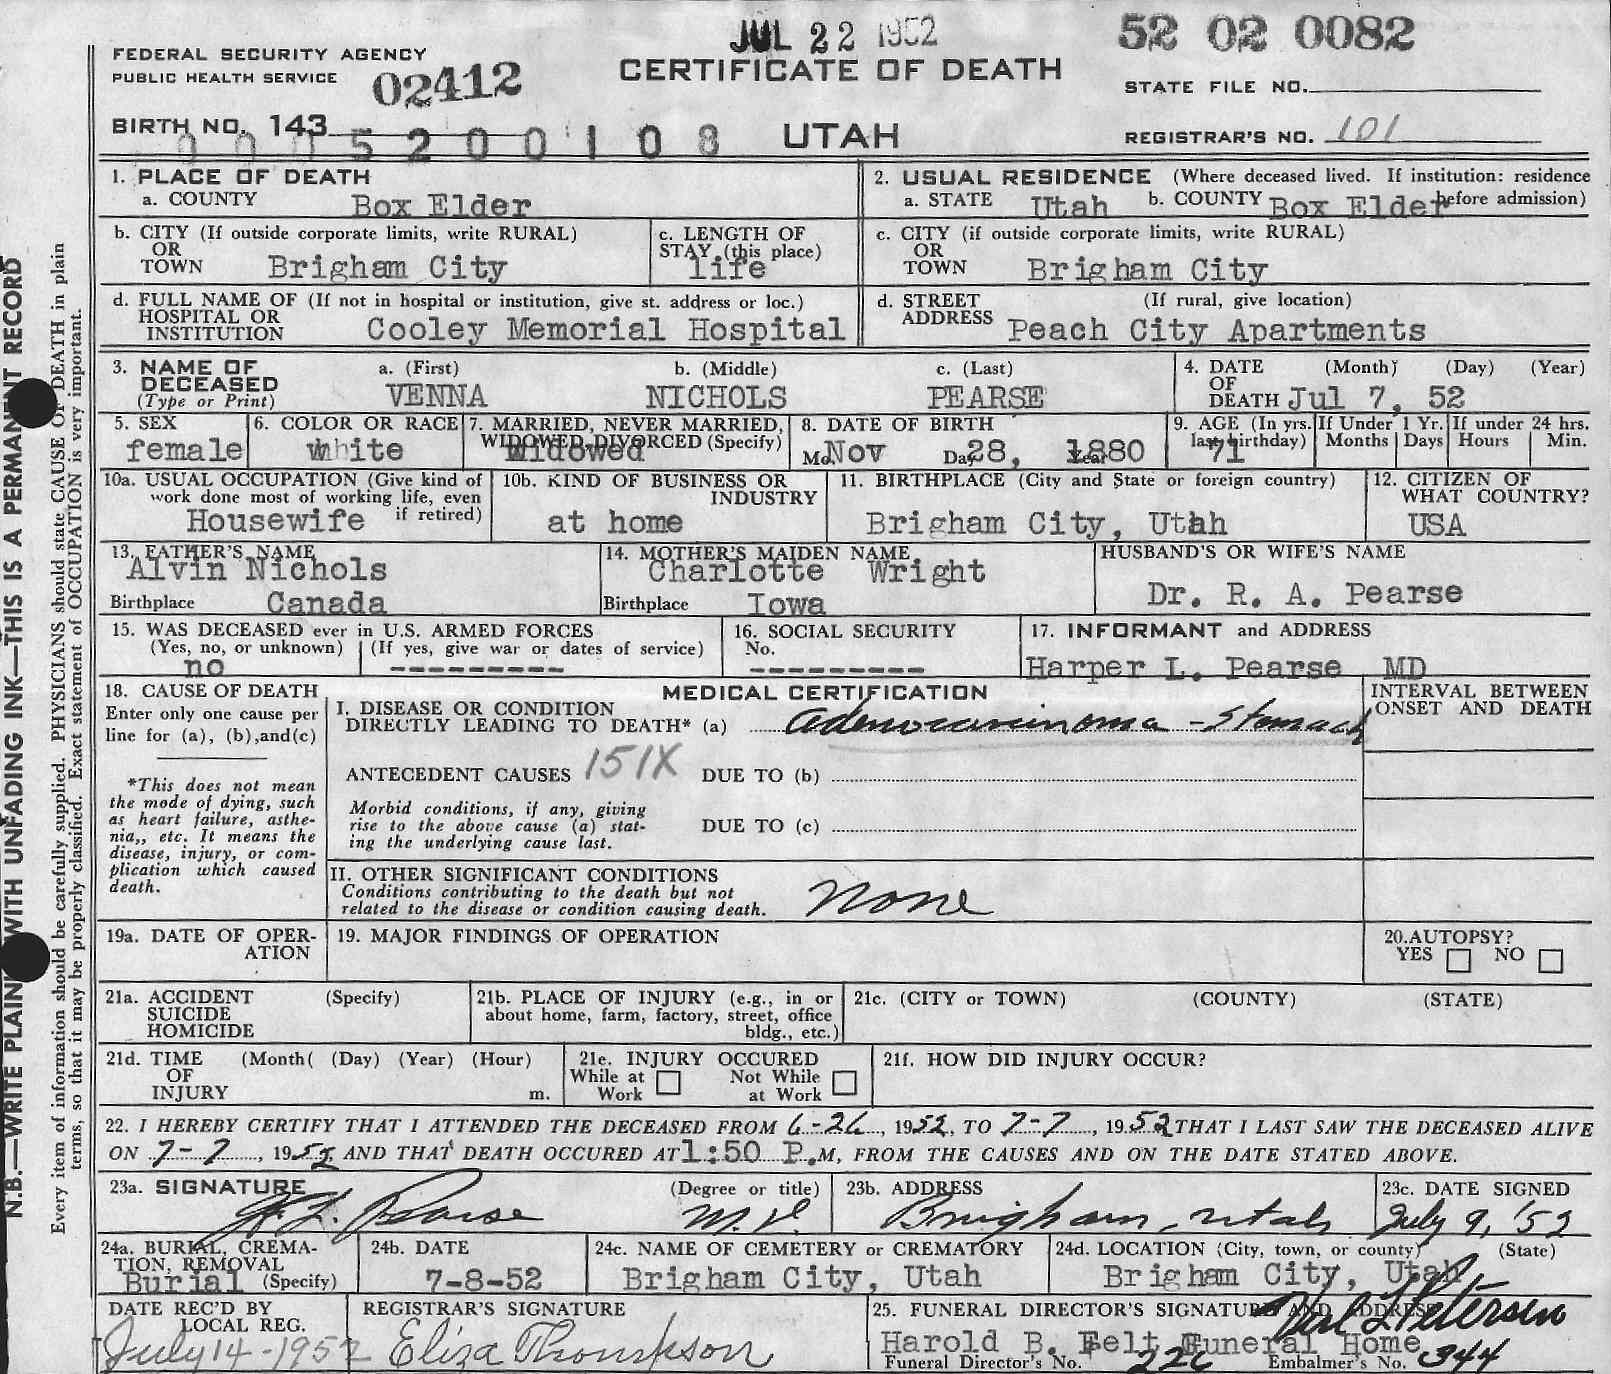 JUL 22 1952
52 02 0082
FEDERAL SECURITY AGENCY
PUBLIC HEALTH SERVICE
02412
CERTIFICATE OF DEATH
STATE FILE NO.
BIRTH NO. 143
0005200108
UTAH
REGISTRAR'S NO. 101
1. PLACE OF DEATH
a. COUNTY Box Elder
2. USUAL RESIDENCE (Where deceased lived. If institution: residence before admission)
a. STATE Utah b. COUNTY Box Elder
b. CITY (If outside corporate limits, write RURAL)
OR
TOWN Brigham City
c. LENGTH OF
STAY (this place)
life
c. CITY (if outside corporate limits, write RURAL)
OR
TOWN Brigham City
d. FULL NAME OF (If not in hospital or institution, give st. address or loc.)
HOSPITAL OR
INSTITUTION Cooley Memorial Hospital
d. STREET (If rural, give location)
ADDRESS Peach City Apartments
3. NAME OF
DECEASED
(Type or Print)
a. (First) b. (Middle) c. (Last)
VENNA NICHOLS PEARSE
4. DATE (Month) (Day) (Year)
OF
DEATH Jul 7, 52
5. SEX
female
6. COLOR OR RACE
white
7. MARRIED, NEVER MARRIED,
WIDOWED, DIVORCED (Specify)
Widowed
8. DATE OF BIRTH
Mo. Nov Day 28, Year 1880
9. AGE (In yrs.
last birthday)
71
If Under 1 Yr.
Months Days
If under 24 hrs.
Hours Min.
10a. USUAL OCCUPATION (Give kind of
work done most of working life, even
if retired)
Housewife
10b. KIND OF BUSINESS OR
INDUSTRY
at home
11. BIRTHPLACE (City and State or foreign country)
Brigham City, Utah
12. CITIZEN OF
WHAT COUNTRY?
USA
13. FATHER'S NAME
Alvin Nichols
Birthplace Canada
14. MOTHER'S MAIDEN NAME
Charlotte Wright
Birthplace Iowa
HUSBAND'S OR WIFE'S NAME
Dr. R. A. Pearse
15. WAS DECEASED ever in U.S. ARMED FORCES
(Yes, no, or unknown) (If yes, give war or dates of service)
no ---------
16. SOCIAL SECURITY
No.
---------
17. INFORMANT and ADDRESS
Harper L. Pearse MD
18. CAUSE OF DEATH
Enter only one cause per
line for (a), (b),and(c)
*This does not mean
the mode of dying, such
as heart failure, asthe-
nia,, etc. It means the
disease, injury, or com-
plication which caused
death.
MEDICAL CERTIFICATION
INTERVAL BETWEEN
ONSET AND DEATH
I. DISEASE OR CONDITION
DIRECTLY LEADING TO DEATH* (a) adenocarcinoma - Stomach
ANTECEDENT CAUSES 151X DUE TO (b)
Morbid conditions, if any, giving
rise to the above cause (a) stat-
ing the underlying cause last.
DUE TO (c)
II. OTHER SIGNIFICANT CONDITIONS
Conditions contributing to the death but not
related to the disease or condition causing death.
None
19a. DATE OF OPER-
ATION
19. MAJOR FINDINGS OF OPERATION
20.AUTOPSY?
YES NO
21a. ACCIDENT (Specify)
SUICIDE
HOMICIDE
21b. PLACE OF INJURY (e.g., in or
about home, farm, factory, street, office
bldg., etc.)
21c. (CITY or TOWN) (COUNTY) (STATE)
21d. TIME (Month( (Day) (Year) (Hour)
OF
INJURY m.
21e. INJURY OCCURED
While at Work Not While at Work
21f. HOW DID INJURY OCCUR?
22. I HEREBY CERTIFY THAT I ATTENDED THE DECEASED FROM 6-26, 1952, TO 7-7, 1952 THAT I LAST SAW THE DECEASED ALIVE
ON 7-7, 1952 AND THAT DEATH OCCURED AT 1:50 P.M, FROM THE CAUSES AND ON THE DATE STATED ABOVE.
23a. SIGNATURE (Degree or title)
H. L. Pearse M.D.
23b. ADDRESS
Brigham, Utah
23c. DATE SIGNED
July 9, '52
24a. BURIAL, CREMA-
TION, REMOVAL
Burial (Specify)
24b. DATE
7-8-52
24c. NAME OF CEMETERY or CREMATORY
Brigham City, Utah
24d. LOCATION (City, town, or county) (State)
Brigham City, Utah
DATE REC'D BY
LOCAL REG.
July 14-1952
REGISTRAR'S SIGNATURE
Eliza Thompson
25. FUNERAL DIRECTOR'S SIGNATURE AND ADDRESS
Petersen
Harold B. Felt Funeral Home
Funeral Director's No. 226 Embalmer's No. 344
N.B.—WRITE PLAINLY WITH UNFADING INK—THIS IS A PERMANENT RECORD
Every item of information should be carefully supplied. PHYSICIANS should state CAUSE OF DEATH in plain
terms, so that it may be properly classified. Exact statement of OCCUPATION is very important.